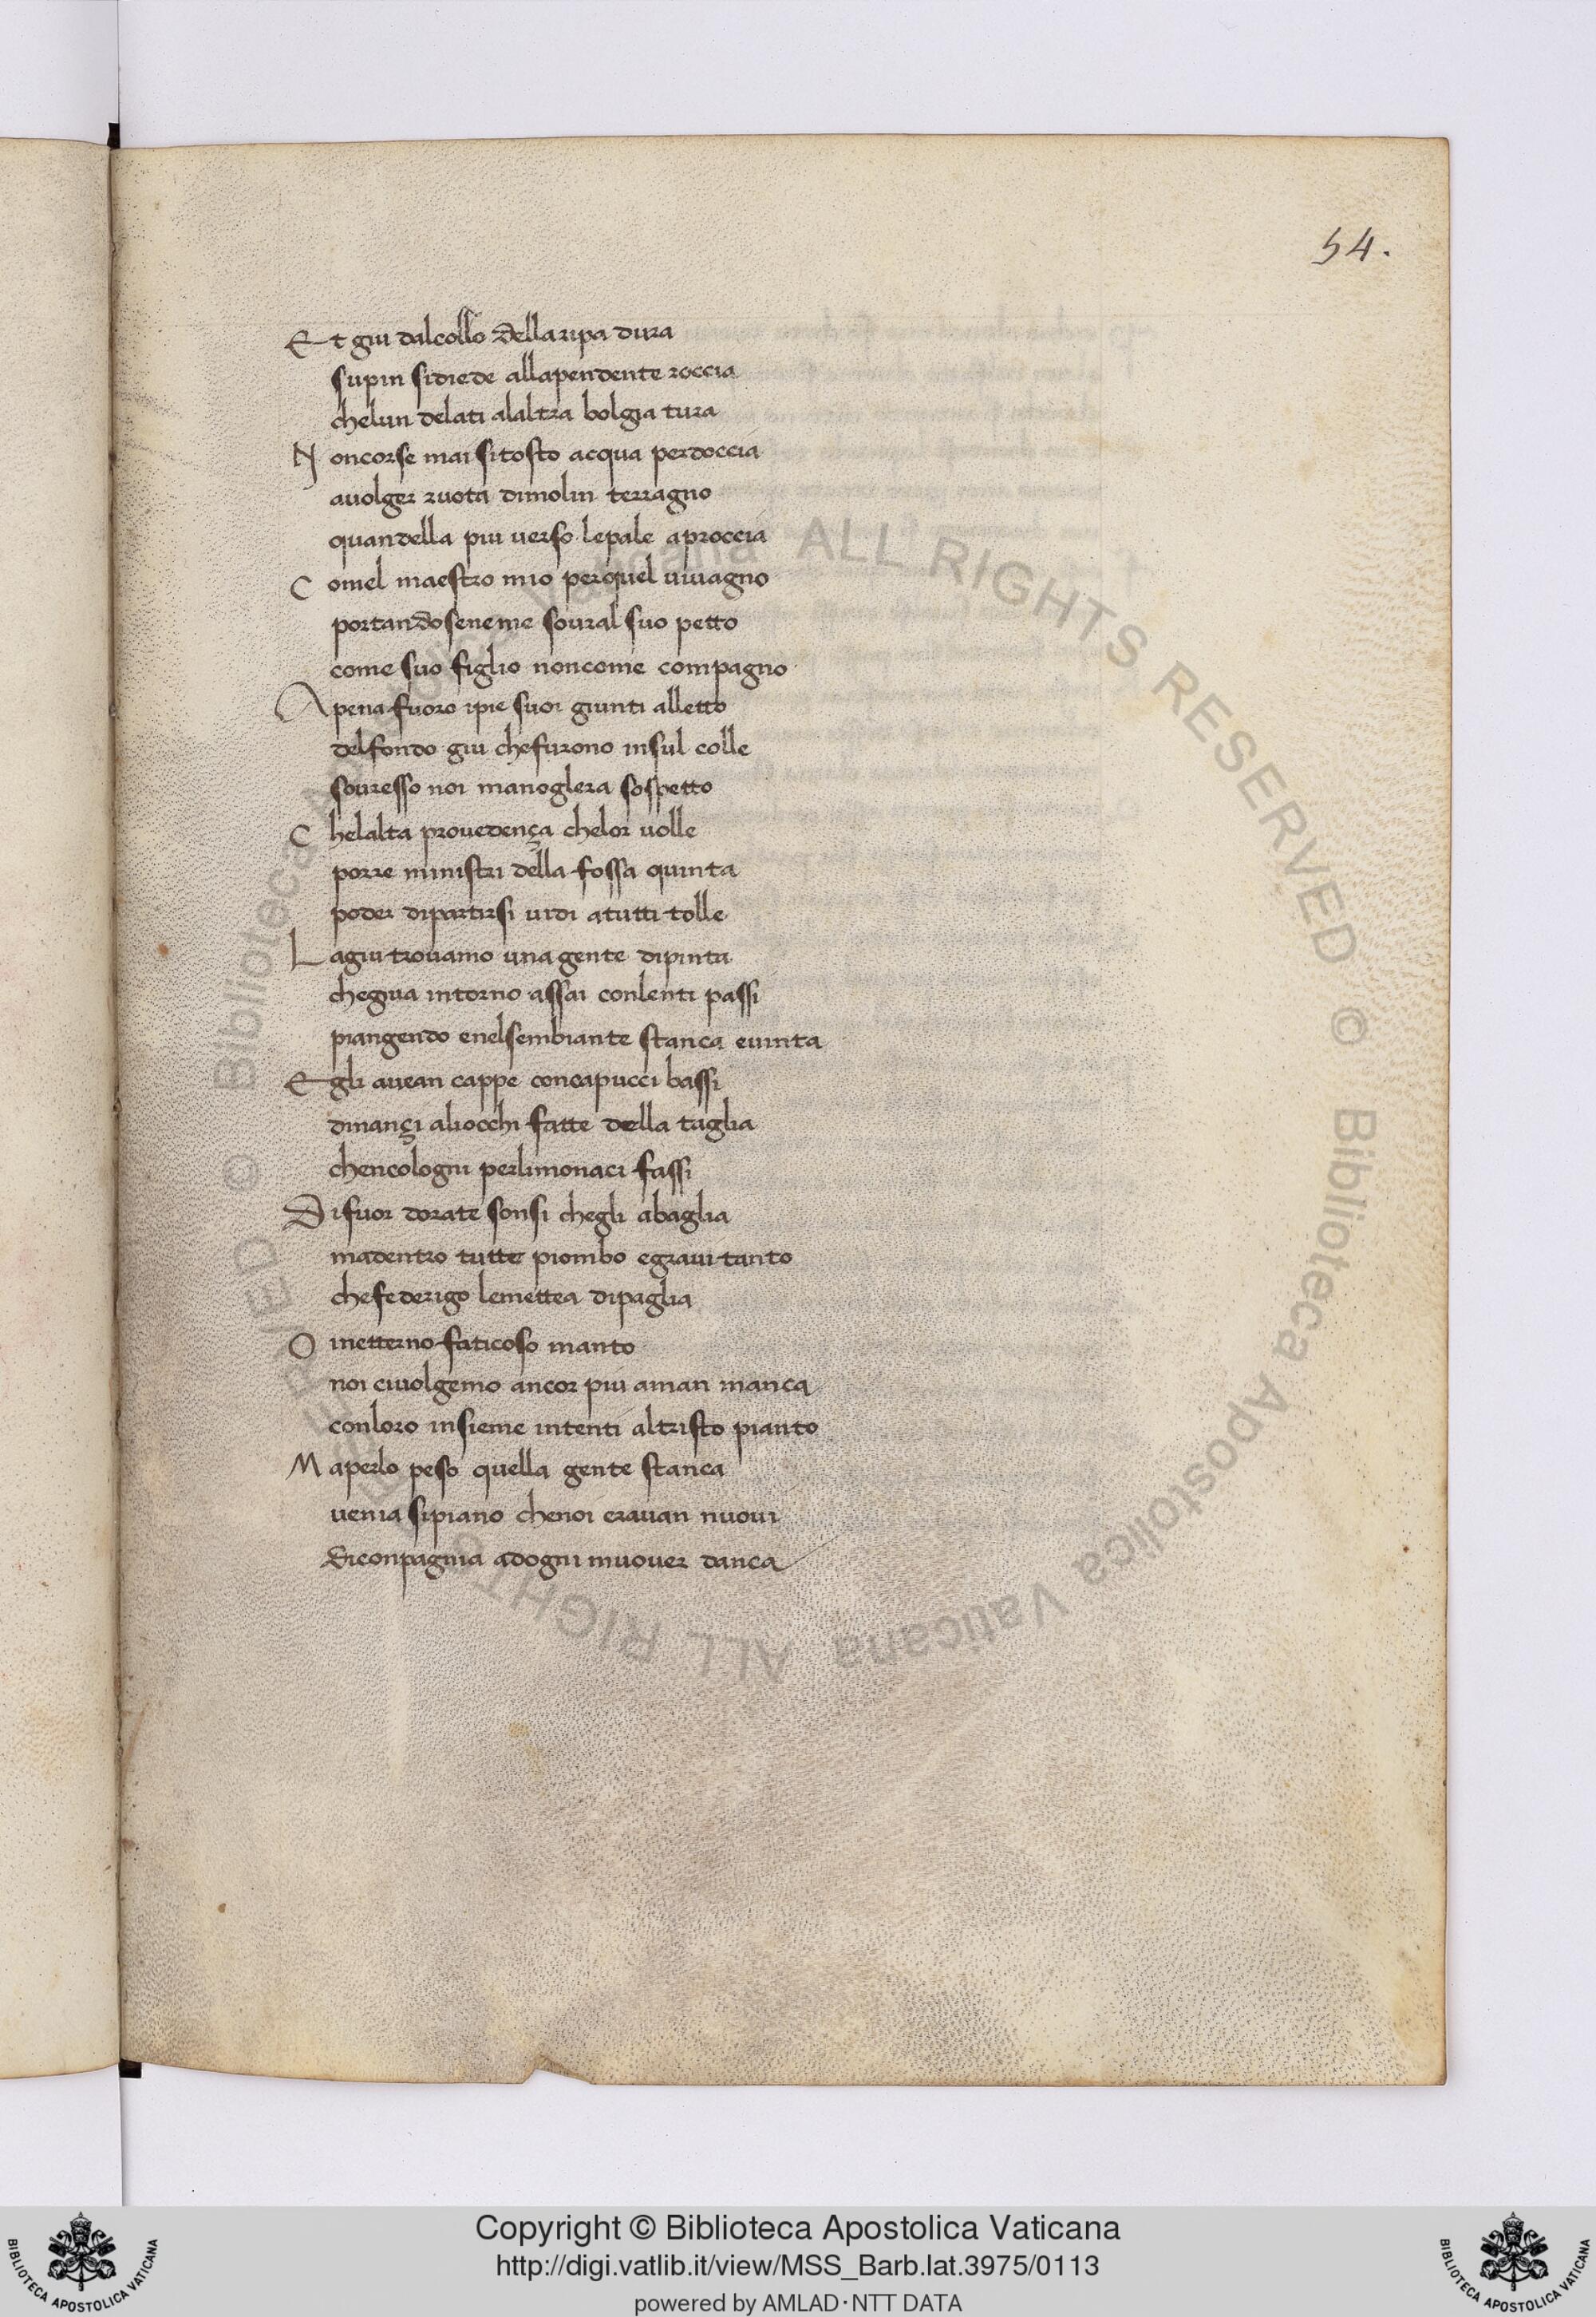 54.
Et giu dalcollo dellaripa dura
supin sidiede allapendente roccia
chelun delati alaltra bolgia tura
Noncorse mai sitosto acqua perdoccia
auolger ruota dimolin terragno
quandella piu uerso lepale aproccia
Comel maestro mio perquel uiuagno
portandoseneme soural suo petto
come suo figlio noncome compagno
Apena fuoro ipie suoi giunti alletto
delfondo giu chefurono insul colle
souresso noi manoglera sospetto
Chelalta prouedença chelor uolle
porre ministri della fossa quinta
poder dipartirsi uidi atutti tolle
Lagiu trouamo una gente dipinta
chegiua intorno assai conlenti passi
piangendo enelsembiante stanca euinta
Egli auean cappe concapucci bassi
dinançi aliocchi fatte della taglia
chencologni perlimonaci fassi
Difuor dorate sonsi chegli abaglia
madentro tutte piombo egraui tanto
chefederigo lemettea dipaglia
O inetterno faticoso manto
noi ciuolgemo ancor piu aman manca
conloro insieme intenti altristo pianto
Maperlo peso quella gente stanca
uenia sipiano chenoi erauan nuoui
Diconpagnia adogni muouer danca
Biblioteca Apostolica Vaticana ALL RIGHTS RESERVED © Biblioteca Apostolica Vaticana ALL RIGHTS RESERVED ©
Copyright © Biblioteca Apostolica Vaticana
http://digi.vatlib.it/view/MSS_Barb.lat.3975/0113
powered by AMLAD·NTT DATA
BIBLIOTECA APOSTOLICA VATICANA
BIBLIOTECA APOSTOLICA VATICANA